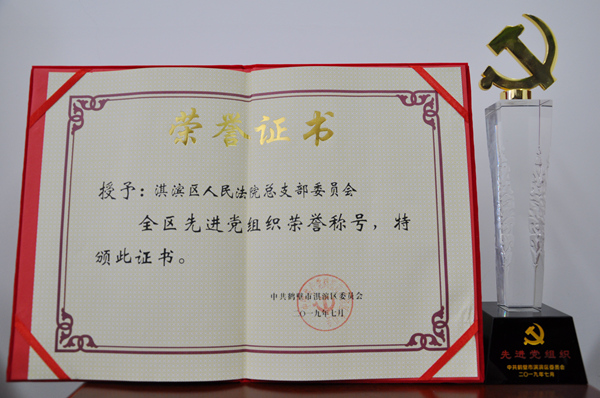 荣誉证书
授予：淇滨区人民法院总支部委员会
全区先进党组织荣誉称号，特
颁此证书。
中共鹤壁市淇滨区委员会
二〇一九年七月
先进党组织
中共鹤壁市淇滨区委员会
二〇一九年七月